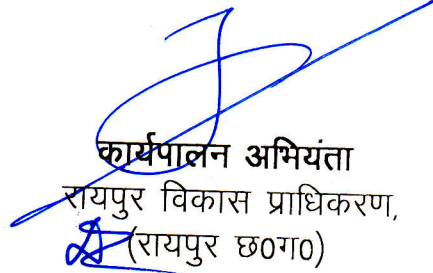 कार्यपालन अभियंता
रायपुर विकास प्राधिकरण,
(रायपुर छ0ग0)